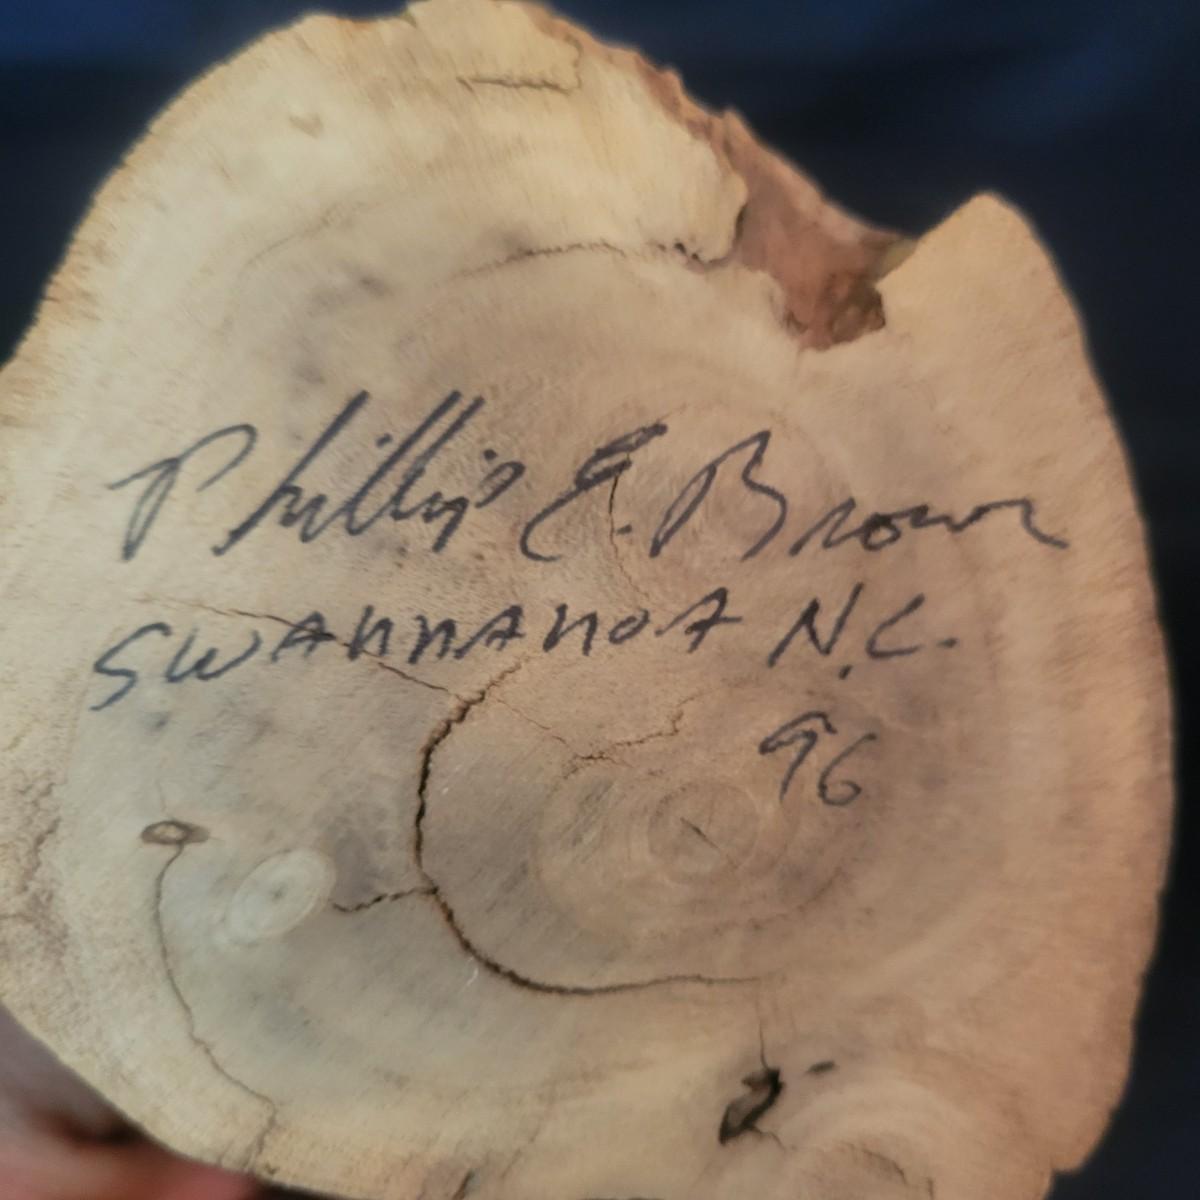 Phillip E. Brown
SWANNANOA N.C.
96